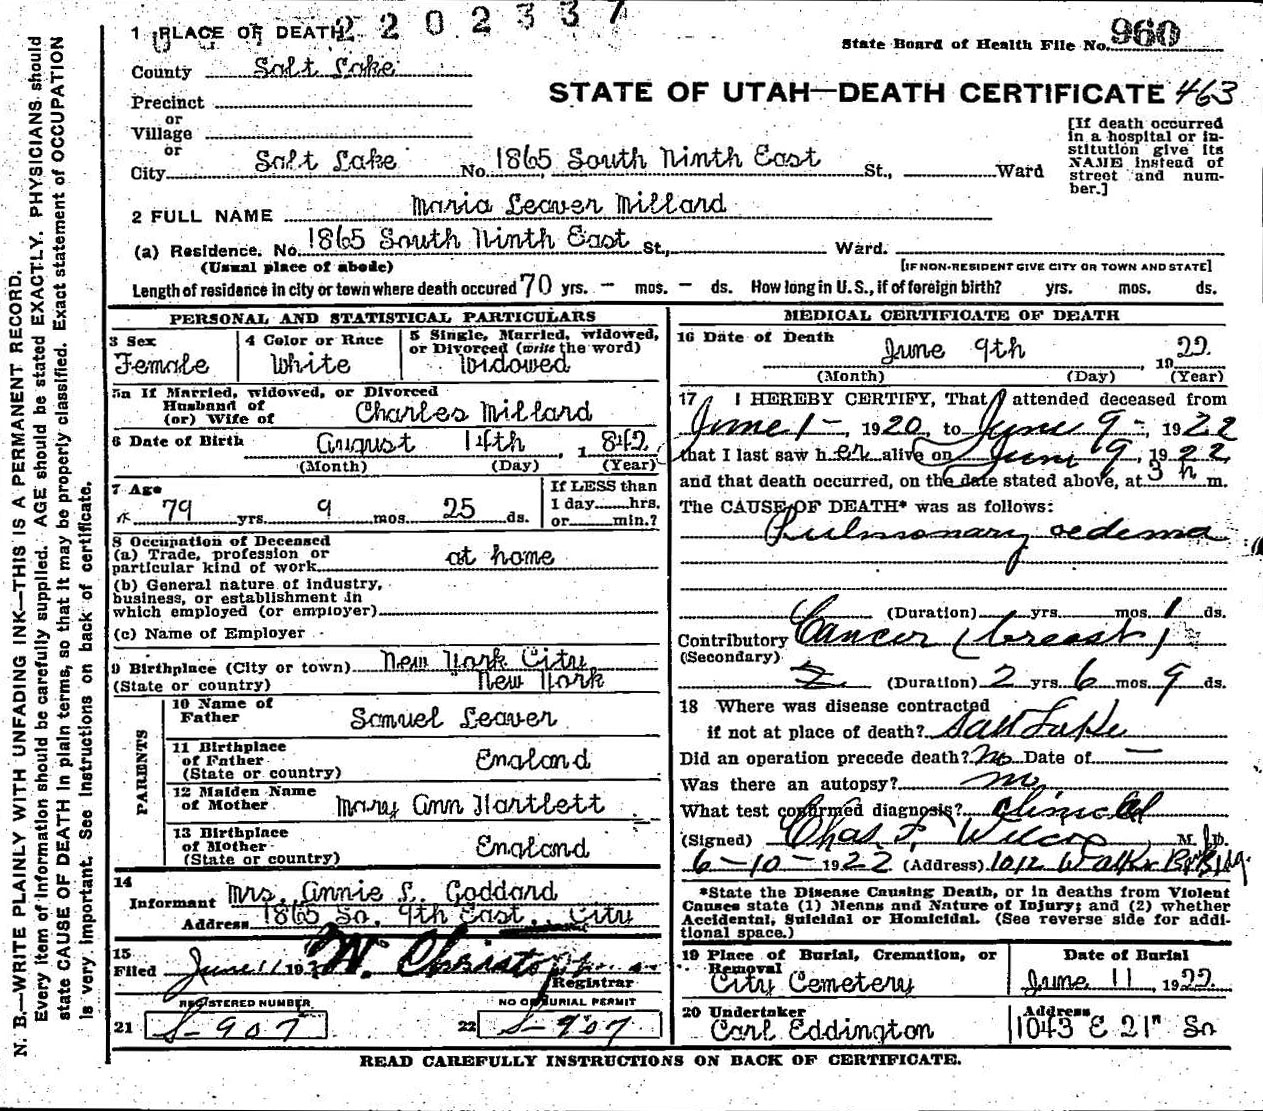 2 2 0 2 3 3 7
1 PLACE OF DEATH
State Board of Health File No. 960
County Salt Lake
STATE OF UTAH—DEATH CERTIFICATE 463
Precinct
or
Village
or
City Salt Lake No. 1865 South Ninth East St., Ward
[If death occurred in a hospital or in-
stitution give its
NAME instead of
street and num-
ber.]
2 FULL NAME Maria Leaver Millard
(a) Residence. No. 1865 South Ninth East St., Ward.
(Usual place of abode) [IF NON-RESIDENT GIVE CITY OR TOWN AND STATE]
Length of residence in city or town where death occured 70 yrs. — mos. — ds. How long in U.S., if of foreign birth? yrs. mos. ds.
PERSONAL AND STATISTICAL PARTICULARS
3 Sex
Female
4 Color or Race
White
5 Single, Married, widowed,
or Divorced (write the word)
Widowed
5a If Married, widowed, or Divorced
Husband of
(or) Wife of Charles Millard
6 Date of Birth August 14th, 1842
(Month) (Day) (Year)
7 Age
79 yrs. 9 mos. 25 ds.
If LESS than
1 day hrs.
or min.?
8 Occupation of Deceased
(a) Trade, profession or
particular kind of work at home
(b) General nature of industry,
business, or establishment in
which employed (or employer)
(c) Name of Employer
9 Birthplace (City or town) New York City,
(State or country) New York
PARENTS
10 Name of
Father Samuel Leaver
11 Birthplace
of Father England
(State or country)
12 Maiden Name
of Mother Mary Ann Hartlett
13 Birthplace
of Mother England
(State or country)
14
Informant Mrs. Annie L. Goddard
Address 1865 So. 9th East. City
15
Filed June 11 19 W. Christo
Registrar
REGISTERED NUMBER
21 S-907
NO OF BURIAL PERMIT
22 S-907
MEDICAL CERTIFICATE OF DEATH
16 Date of Death June 9th 1922
(Month) (Day) (Year)
17 I HEREBY CERTIFY, That I attended deceased from
June 1 -, 1920, to June 9 -, 1922
that I last saw her alive on June 9, 1922
and that death occurred, on the date stated above, at 3 m.
The CAUSE OF DEATH* was as follows:
Pulmonary oedema
(Duration) yrs. mos. 1 ds.
Contributory Cancer (breast)
(Secondary)
(Duration) 2 yrs 6 mos 9 ds.
18 Where was disease contracted
if not at place of death? Salt Lake
Did an operation precede death? No Date of —
Was there an autopsy? no
What test confirmed diagnosis? clinical
(Signed) Chas. F. Wilcox, M. D.
6-10-1922 (Address) 1012 Walker Bk Bldg
*State the Disease Causing Death, or in deaths from Violent
Causes state (1) Means and Nature of Injury; and (2) whether
Accidental, Suicidal or Homicidal. (See reverse side for addi-
tional space.)
19 Place of Burial, Cremation, or
Removal
City Cemetery
Date of Burial
June 11, 1922
20 Undertaker
Carl Eddington
Address
1043 E 21" So
READ CAREFULLY INSTRUCTIONS ON BACK OF CERTIFICATE.
N. B.—WRITE PLAINLY WITH UNFADING INK—THIS IS A PERMANENT RECORD.
Every item of information should be carefully supplied. AGE should be stated EXACTLY. PHYSICIANS should
state CAUSE OF DEATH in plain terms, so that it may be properly classified. Exact statement of OCCUPATION
is very important. See instructions on back of certificate.